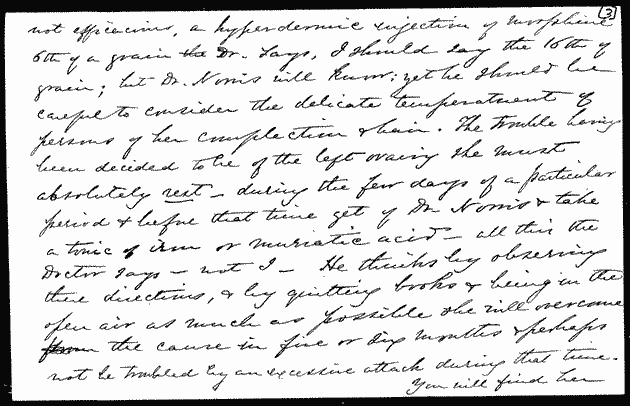 (3)
not efficacious, a hyperdermic injection of morphine
6th of a grain the Dr. says, I should say the 16th of
grain; but Dr. Norris will know; yet he should be
careful to consider the delicate temperatment of
persons of her complection & hair. The trouble having
been decided to be of the left ovairy she must
absolutely rest – during the few days of a particular
period & before that time get of Dr Norris & take
a tonic of iron or muriatic acid – all this the
Doctor says – not I – He thinks by observing
these directions, & by quitting books & being in the
open air as much as possible she will overcome
from the cause in five or six months & perhaps
not be troubled by an excessive attack during that time.
You will find her